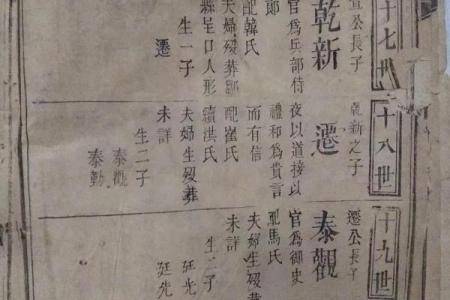 十七世
宣公長子
乾新
官為兵部侍
郎
配韓氏
夫婦歿葬鄒
縣呈口人形
生一子
遷
十八世
乾新之子
遷
夜以道接以
禮和為貴言
而有信
配崔氏
續洪氏
夫婦生歿葬
未詳
生二子
泰觀
泰勤
十九世
遷公長子
泰觀
官為御史
配馬氏
夫婦生歿葬
未詳
生二子
廷光
廷先